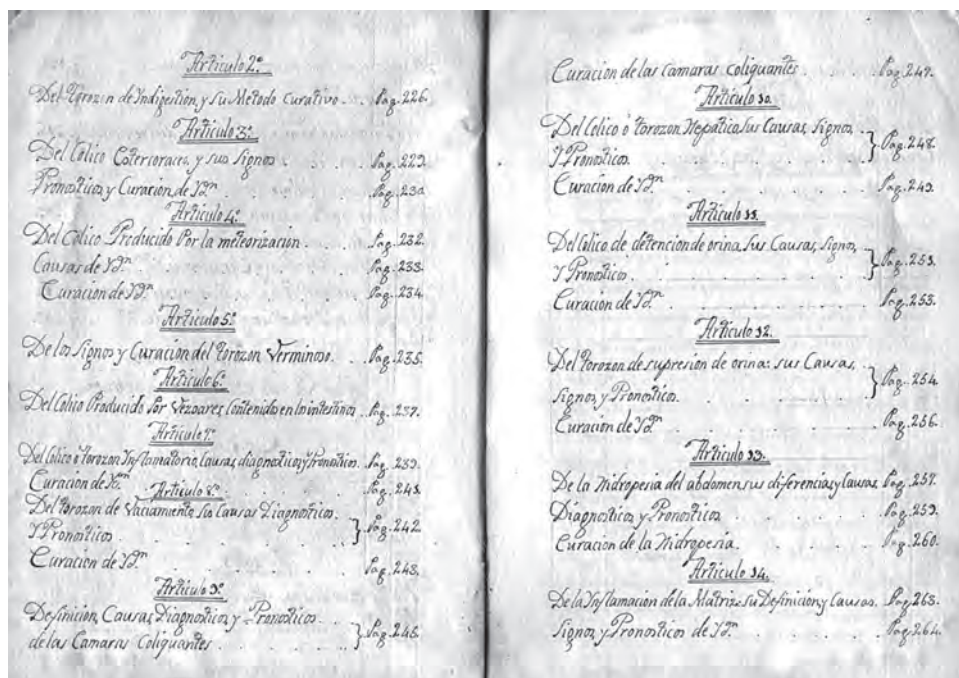 Articulo 2º
Del Torozon de Yndigestion, y su Metodo Curativo . . Pag. 226.
Articulo 3º
Del Colico Estercoraceo, y sus Signos . . . Pag. 229.
Pronosticos y Curacion de Ydn . . . Pag. 230.
Articulo 4º
Del Colico Producido Por la meteorizacion . . . Pag. 232.
Causas de Ydn . . . Pag. 233.
Curacion de Ydn . . . Pag. 234.
Articulo 5º
De los Signos y Curacion del Torozon Verminoso. . . Pag. 235.
Articulo 6º
Del Colico Producido Por Vezoares Contenidos en los intestinos . . Pag. 237.
Articulo 7º
Del Colico ó torozon Ynflamatorio, Causas, diagnosticos y Pronosticos. Pag. 239.
Curacion de Ydn . . . Pag. 241.
Articulo 8º
Del torozon de Vaciamiento, Sus Causas Diagnosticos.
Y Pronosticos . . . } Pag. 242
Curacion de Ydn . . . Pag. 243.
Articulo 9º
Definicion, Causas, Diagnosticos, y Pronosticos . .
de las Camaras Coliquantes . . . } Pag. 245.
Curacion de las Camaras Coliquantes . . . Pag. 247.
Articulo 10.
Del Colico ó torozon Hepatico, Sus Causas, Signos,
Y Pronosticos. . . . } Pag. 248.
Curacion de Ydn . . . Pag. 249.
Articulo 11.
Del Colico de detencion de orina. Sus Causas, Signos,
Y Pronosticos . . . } Pag. 251.
Curacion de Ydn . . . Pag. 253.
Articulo 12.
Del torozon de supresion de orina: sus Causas,
Signos, y Pronosticos. . . . } Pag. 254.
Curacion de Ydn . . . Pag. 256.
Articulo 13.
De la Hidropesia del abdomen sus diferencias y Causas. Pag. 257.
Diagnosticos y Pronosticos . . . Pag. 259.
Curacion de la Hidropesia. . . . Pag. 260.
Articulo 14.
De la Ynflamacion de la Matriz. Su Definicion y Causas. Pag. 263.
Signos, y Pronosticos de Ydn . . . Pag. 264.